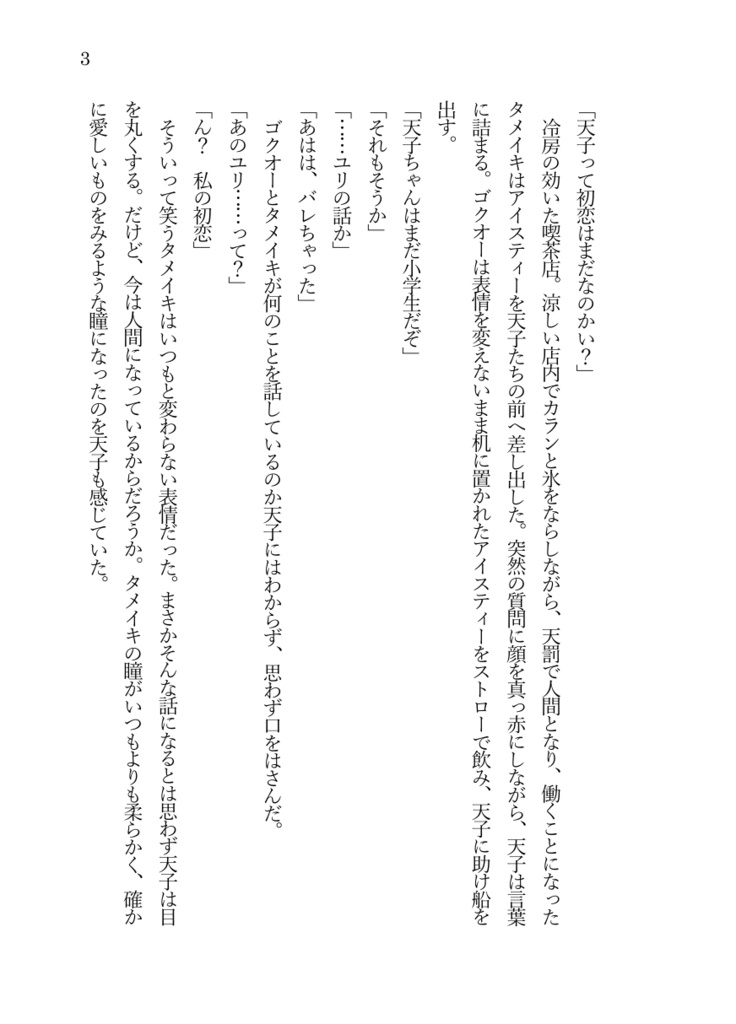 3
「天子って初恋はまだなのかい？」
　冷房の効いた喫茶店。涼しい店内でカランと氷をならしながら、天罰で人間となり、働くことになった
タメイキはアイスティーを天子たちの前へ差し出した。突然の質問に顔を真っ赤にしながら、天子は言葉
に詰まる。ゴクオーは表情を変えないまま机に置かれたアイスティーをストローで飲み、天子に助け船を
出す。
「天子ちゃんはまだ小学生だぞ」
「それもそうか」
「……ユリの話か」
「あはは、バレちゃった」
　ゴクオーとタメイキが何のことを話しているのか天子にはわからず、思わず口をはさんだ。
「あのユリ……って？」
「ん？　私の初恋」
　そういって笑うタメイキはいつもと変わらない表情だった。まさかそんな話になるとは思わず天子は目
を丸くする。だけど、今は人間になっているからだろうか。タメイキの瞳がいつもよりも柔らかく、確か
に愛しいものをみるような瞳になったのを天子も感じていた。